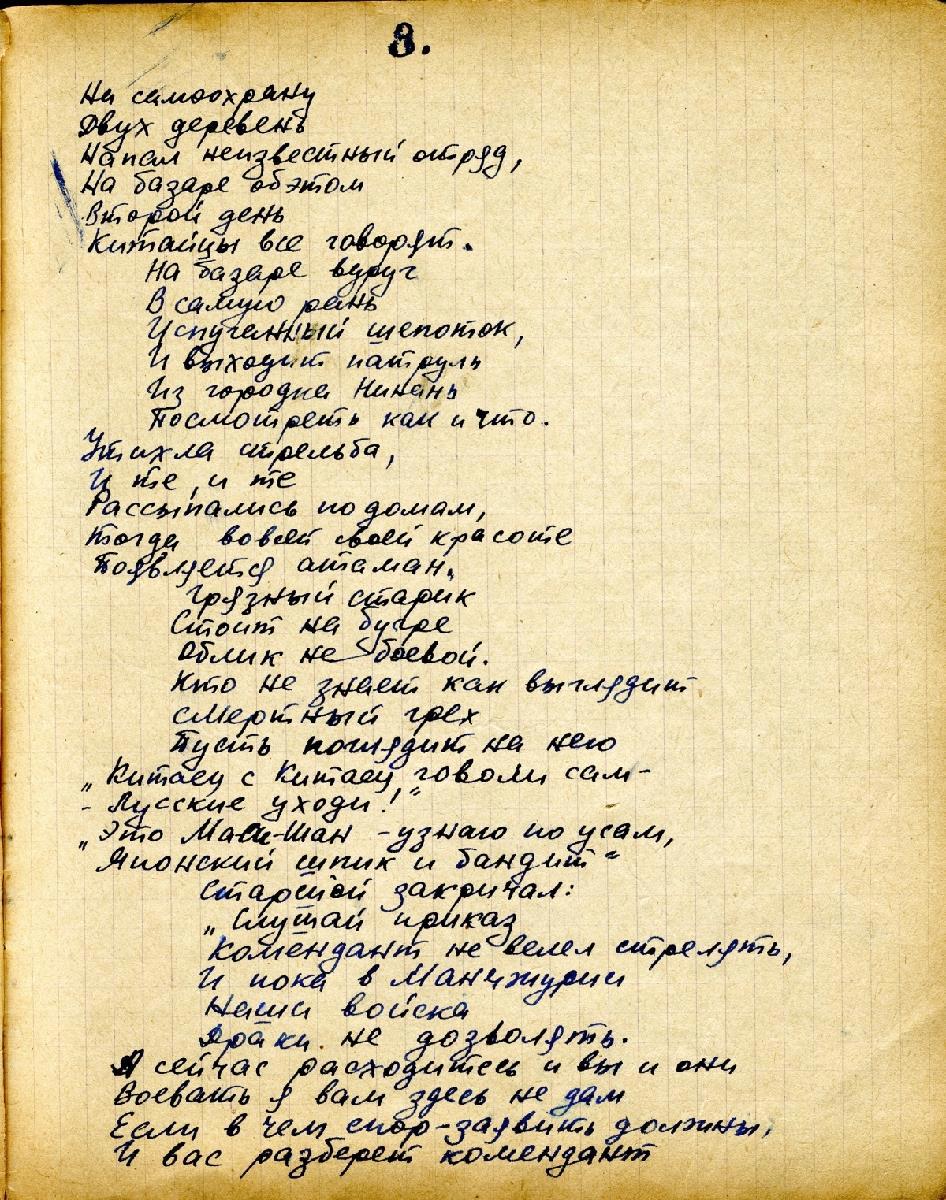 8.
На самоохрану
Двух деревень
Напал неизвестный отряд,
На базаре обэтом
Второй день
Китайцы все говорят.
На базаре вдруг
В самую рань
Испуганный шепоток,
И выходит патруль
Из городка Нинань
Посмотреть как и что.
Утихла стрельба,
И те, и те
Рассыпались по домам,
Тогда вовсей своей красоте
Появляется атаман.
Грязный старик
Стоит на бугре
Облик не боевой.
Кто не знает как выглядит
смертный грех
Пусть поглядит на него
„Китаец с Китаец, говоли сам-
- Лусские уходи!"
„Это Ма-Си-Шан - узнаю по усам,
Японский шпик и бандит"
Старшой закричал:
„Слушай приказ
Комендант не велел стрелять,
И пока в Манчжурии
Наши войска
Драки не дозволять.
А сейчас расходитесь и вы и они
Воевать я вам здесь не дам
Если в чем спор-заявить должны,
И вас разберет комендант